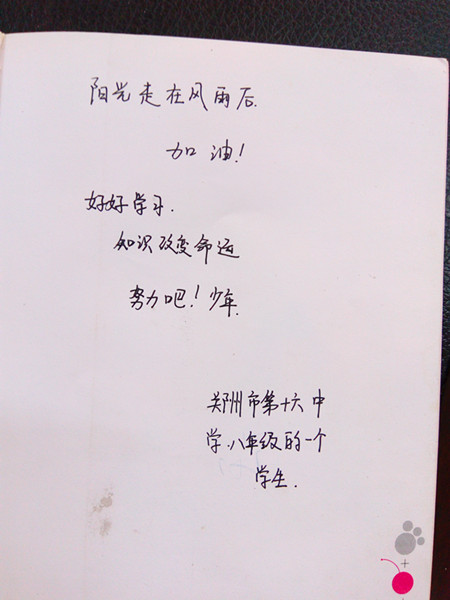 阳光走在风雨后.
加油!
好好学习.
知识改变命运
努力吧!少年.
郑州市第十六中
学.八年级的一个
学生.